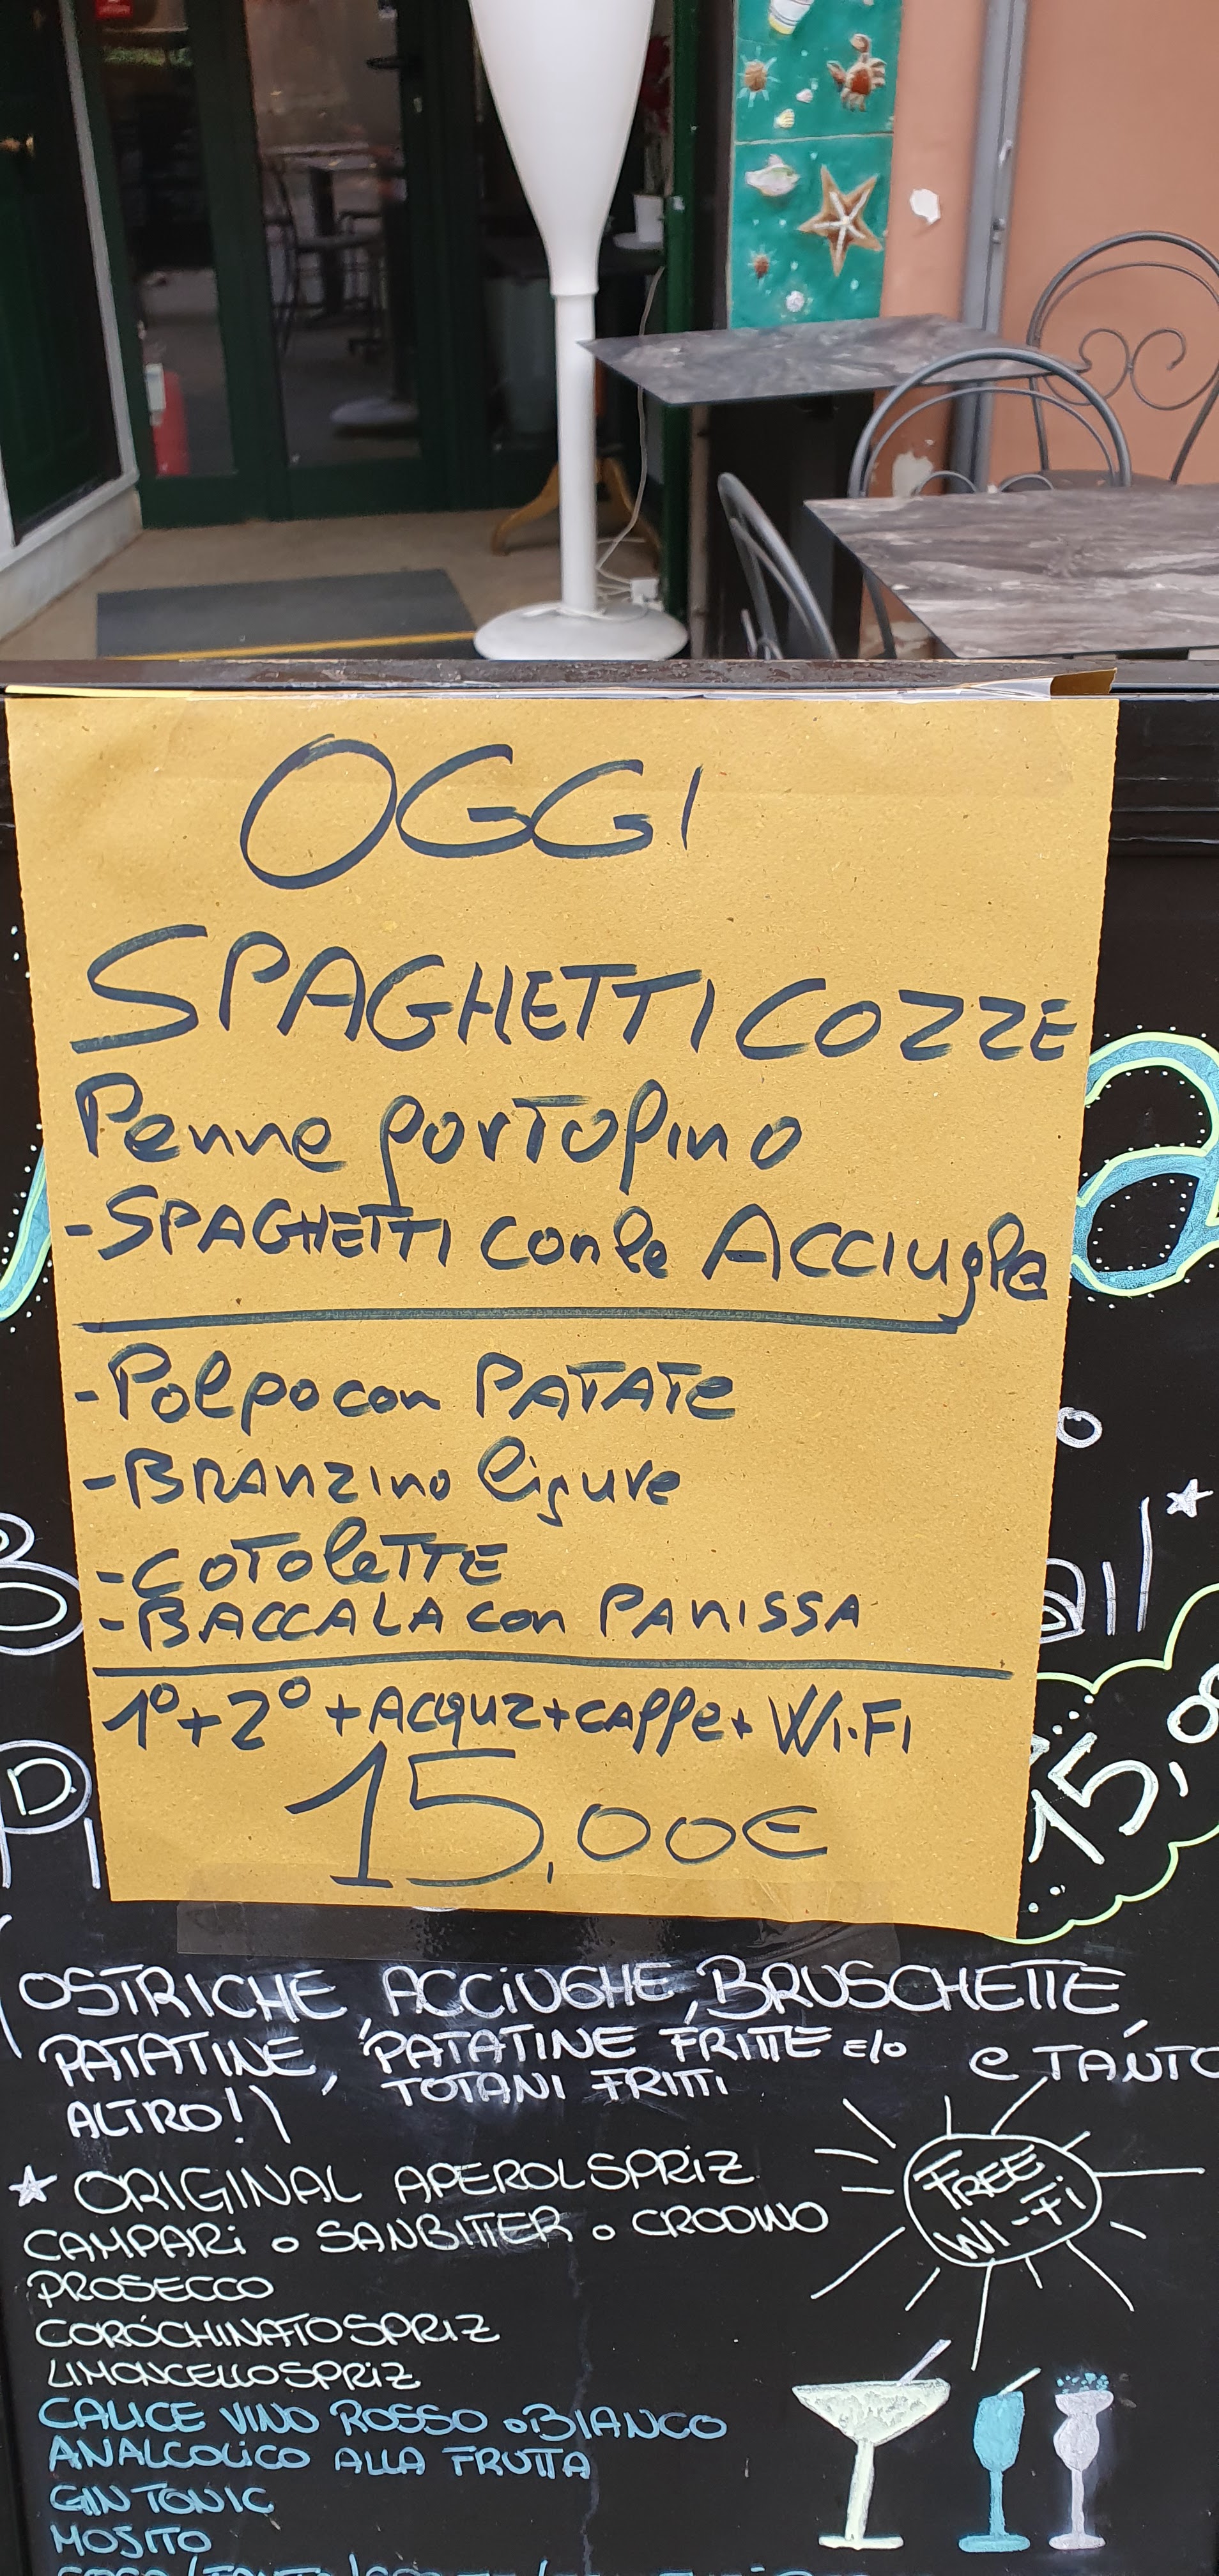 OGGI
SPAGHETTI COZZE
Penne portofino
- SPAGHETTI con le ACCIUghe
- Polpo con PATATE
- BRANZINO ligure
- COTOLETTE
- BACCALA con PANISSA
1° + 2° + ACQUA + CAFFE + WI-FI
15,00€
15,00
OSTRICHE, ACCIUGHE, BRUSCHETTE,
PATATINE, PATATINE FRITTE e/o
TOTANI FRITTI
e TANTO
ALTRO!)
ORIGINAL APEROL SPRIZ
CAMPARI o SANBITTER o CRODINO
PROSECCO
COROCHINATO SPRIZ
LIMONCELLO SPRIZ
CALICE VINO ROSSO o BIANCO
ANALCOLICO ALLA FRUTTA
GIN TONIC
MOJITO
FREE
WI-FI